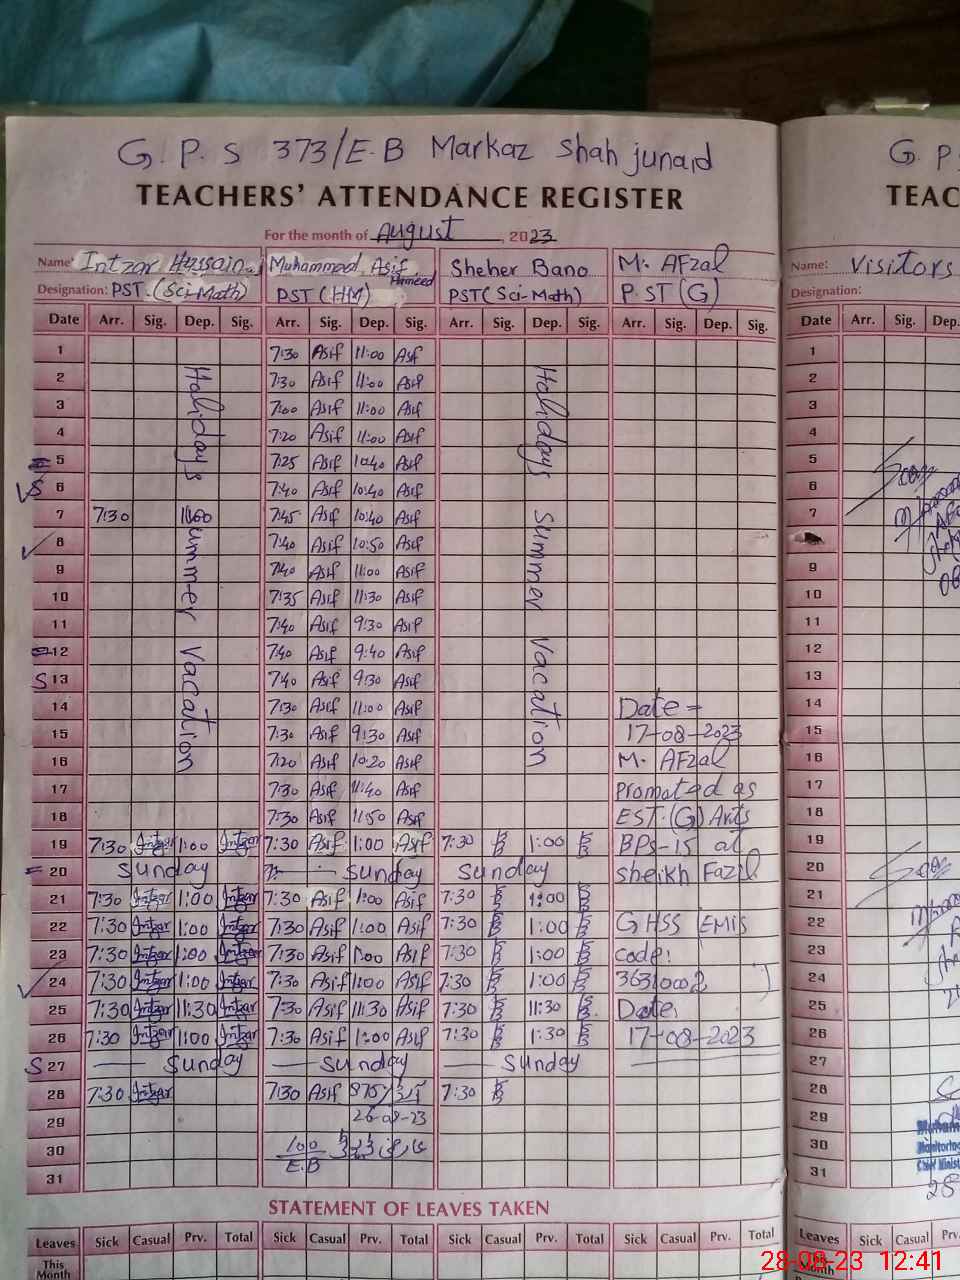 G.P.S 373/E.B Markaz Shah junaid
G.P.S
TEACHERS' ATTENDANCE REGISTER
TEAC
For the month of August, 2023
Name: Intzar Hussain. Muhammad Asif Hameed Sheher Bano M. AFzal
Name: Visitors
Designation: PST.(Sci-Math) PST(HM) PST(Sci-Math) P.ST(G)
Designation:
Date Arr. Sig. Dep. Sig. Arr. Sig. Dep. Sig. Arr. Sig. Dep. Sig. Arr. Sig. Dep. Sig.
Date Arr. Sig. Dep.
Holidays Summer Vacation
Holidays Summer Vacation
1 7:30 Asif 11:00 Asif
2 7:30 Asif 11:00 Asif
3 7:00 Asif 11:00 Asif
4 7:20 Asif 11:00 Asif
5 7:25 Asif 10:40 Asif
S 6 7:40 Asif 10:40 Asif
7 7:30 11:00 7:45 Asif 10:40 Asif
8 7:40 Asif 10:50 Asif
9 7:40 Asif 11:00 Asif
10 7:35 Asif 11:30 Asif
11 7:40 Asif 9:30 Asif
12 7:40 Asif 9:40 Asif
S 13 7:40 Asif 9:30 Asif
14 7:30 Asif 11:00 Asif Date -
15 7:30 Asif 9:30 Asif 17-08-2023
16 7:20 Asif 10:20 Asif M. AFzal
17 7:30 Asif 11:40 Asif Promoted as
18 7:30 Asif 11:50 Asif EST.(G) Arts
19 7:30 Intzar 1:00 Intzar 7:30 Asif 1:00 Asif 7:30 1:00 BPS-15 at
20 Sunday Sunday Sunday sheikh Fazil
21 7:30 Intzar 1:00 Intzar 7:30 Asif 1:00 Asif 7:30 1:00
22 7:30 Intzar 1:00 Intzar 7:30 Asif 1:00 Asif 7:30 1:00 GHSS EMIS
23 7:30 Intzar 1:00 Intzar 7:30 Asif 1:00 Asif 7:30 1:00 code:
24 7:30 Intzar 1:00 Intzar 7:30 Asif 1:00 Asif 7:30 1:00 36310002
25 7:30 Intzar 11:30 Intzar 7:30 Asif 11:30 Asif 7:30 11:30 Date:
26 7:30 Intzar 1:00 Intzar 7:30 Asif 1:00 Asif 7:30 1:30 17-08-2023
S 27 Sunday Sunday Sunday
28 7:30 Intzar 7:30 Asif 7:30
29 26-08-23
30 100
E.B
31
1
2
3
4
5
6
7
9
10
11
12
13
14
15
16
17
18
19
20
21
22
23
24
25
26
27
28
29
30
31
Chief Minist
28
STATEMENT OF LEAVES TAKEN
Leaves Sick Casual Prv. Total Sick Casual Prv. Total Sick Casual Prv. Total Sick Casual Prv. Total
Leaves Sick Casual Prv.
This Month
Month
28-08-23 12:41